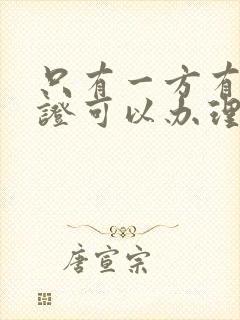 只有一方有
證可以办理
唐宣宗